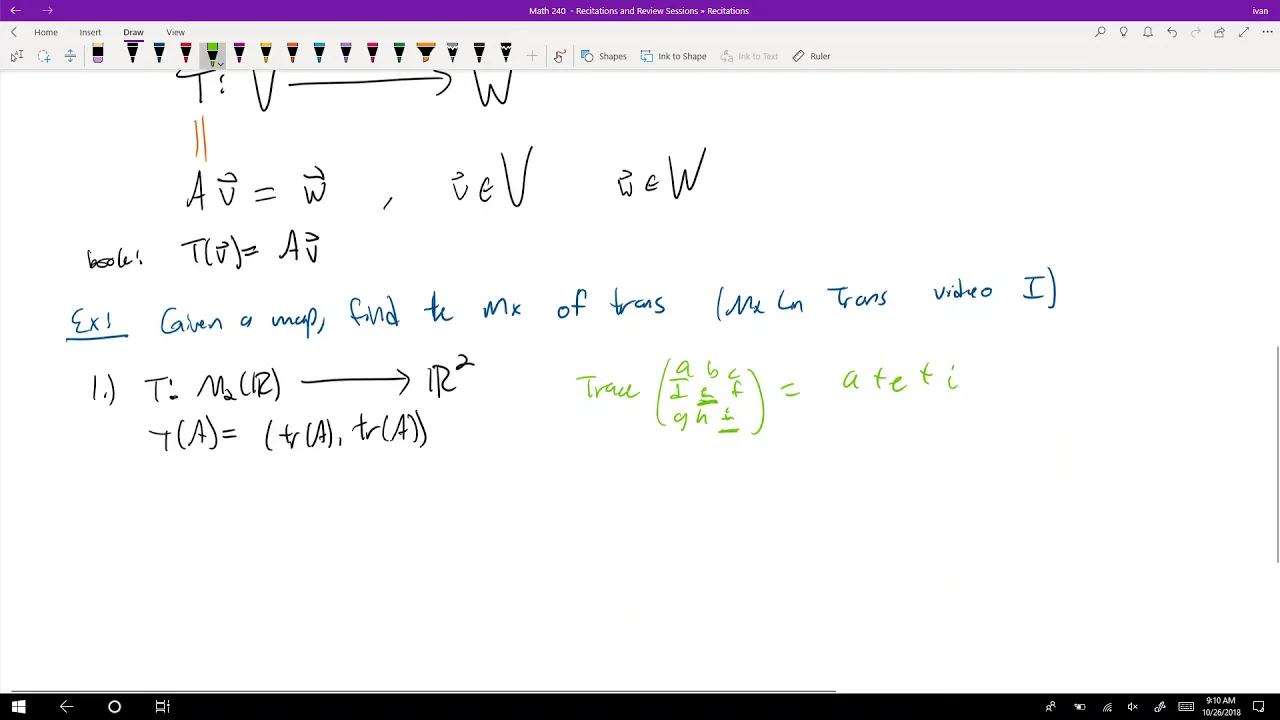 Math 240 - Recitations and Review Sessions » Recitations
ivan
Home Insert Draw View
Shapes Ink to Shape Ink to Text Ruler
T: V ⟶ W
||
A v⃗ = w⃗ , v⃗ ∈ V w⃗ ∈ W
book: T(v⃗) = A v⃗
Ex1 Given a map, find the Mx of trans (Mx Ln Trans video I)
1.) T: M₂(ℝ) ⟶ ℝ²
T(A) = (tr(A), tr(A))
Trace ( a b c
d e f
g h i ) = a + e + i
9:10 AM
10/26/2018